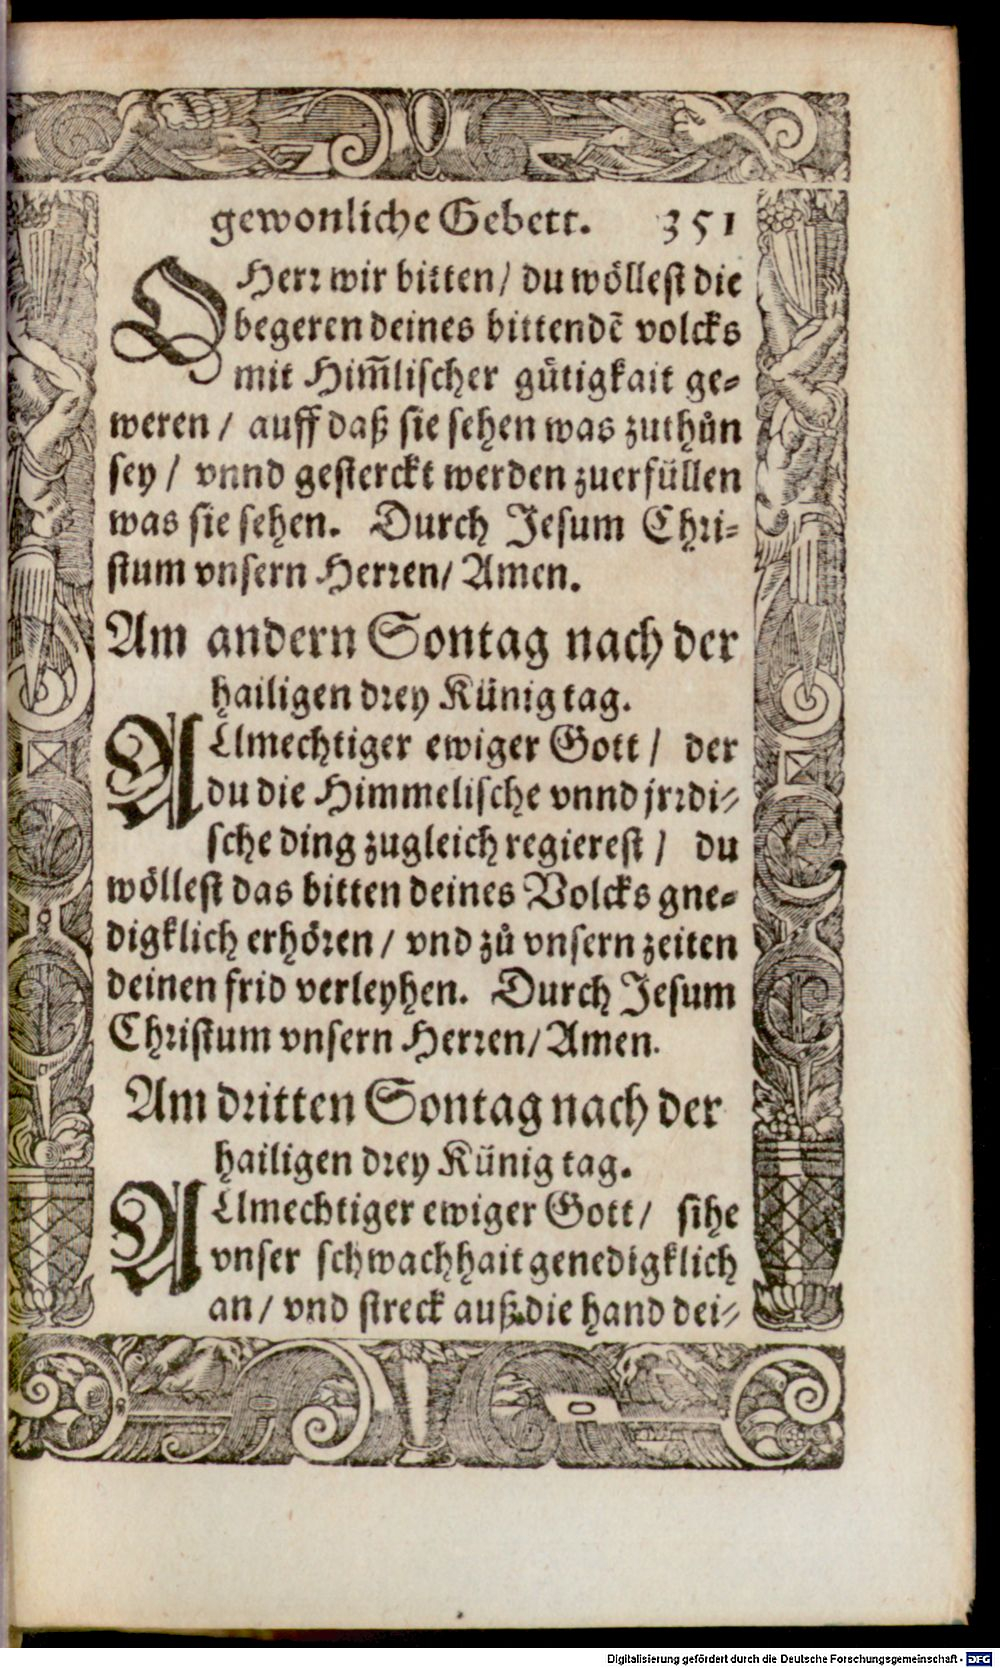 gewonliche Gebett. 351
O Herr wir bitten / du wöllest die
begeren deines bittendẽ volcks
mit Him̃lischer gütigkait ge-
weren / auff daß sie sehen was zuthůn
sey / vnnd gesterckt werden zuerfüllen
was sie sehen. Durch Jesum Chri-
stum vnsern Herren / Amen.
Am andern Sontag nach der
hailigen drey Künig tag.
ALlmechtiger ewiger Gott / der
du die Himmelische vnnd jrrdi-
sche ding zugleich regierest / du
wöllest das bitten deines Volcks gne-
digklich erhören / vnd zů vnsern zeiten
deinen frid verleyhen. Durch Jesum
Christum vnsern Herren / Amen.
Am dritten Sontag nach der
hailigen drey Künig tag.
ALlmechtiger ewiger Gott / sihe
vnser schwachhait genedigklich
an / vnd streck auß die hand dei-
Digitalisierung gefördert durch die Deutsche Forschungsgemeinschaft - DFG